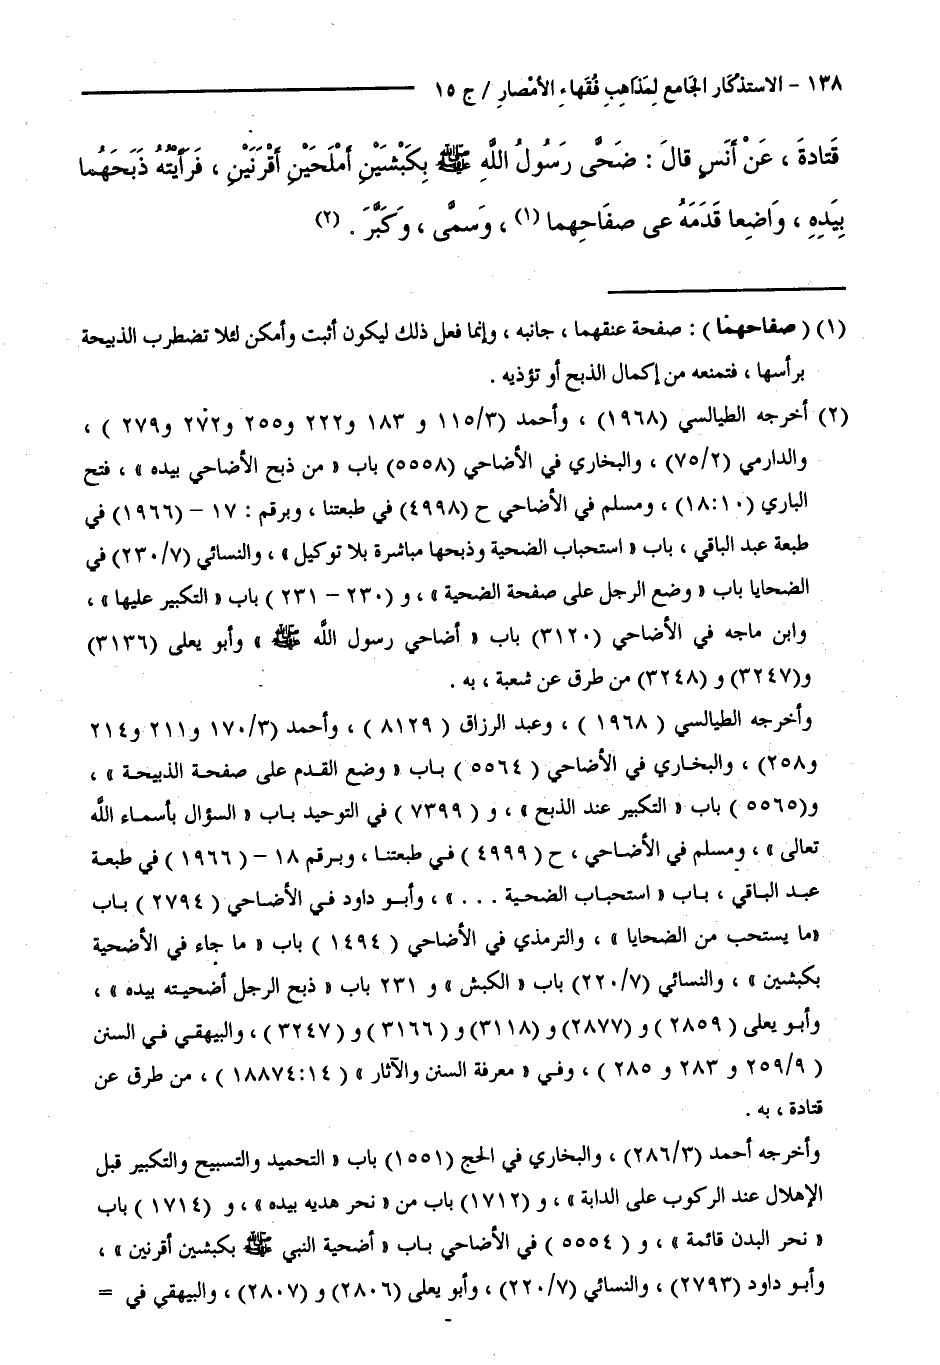 ١٣٨ – الاستذكار الجامع لمذاهب فقهاء الأمصار / ج ١٥
قَتادةَ ، عَنْ أَنَسٍ قالَ : ضَحَّى رَسُولُ اللَّهِ ﷺ بِكَبْشَيْنِ أَمْلَحَيْنِ أَقْرَنَيْنِ ، فَرَأَيْتُهُ ذَبَحَهُما
بِيَدِهِ ، وَاضِعا قَدَمَهُ عى صفَاحِهِما (١) ، وَسمَّى ، وَكَبَّرَ . (٢)
(١) ( صفاحهما ) : صفحة عنقهما ، جانبه ، وإنما فعل ذلك ليكون أثبت وأمكن لئلا تضطرب الذبيحة
برأسها ، فتمنعه من إكمال الذبح أو تؤذيه .
(٢) أخرجه الطيالسي (١٩٦٨) ، وأحمد (١١٥/٣ و ١٨٣ و ٢٢٢ و٢٥٥ و٢٧٢ و٢٧٩ ) ،
والدارمي (٧٥/٢) ، والبخاري في الأضاحي (٥٥٥٨) باب « من ذبح الأضاحي بيده » ، فتح
الباري (١٨:١٠) ، ومسلم في الأضاحي ح (٤٩٩٨) في طبعتنا ، وبرقم : ١٧ – (١٩٦٦) في
طبعة عبد الباقي ، باب « استحباب الضحية وذبحها مباشرة بلا توكيل » ، والنسائي (٢٣٠/٧) في
الضحايا باب « وضع الرجل على صفحة الضحية » ، و (٢٣٠ – ٢٣١ ) باب « التكبير عليها » ،
وابن ماجه في الأضاحي (٣١٢٠) باب « أضاحي رسول اللَّه ﷺ » وأبو يعلى (٣١٣٦)
و(٣٢٤٧) و (٣٢٤٨) من طرق عن شعبة ، به .
وأخرجه الطيالسي ( ١٩٦٨ ) ، وعبد الرزاق ( ٨١٢٩ ) ، وأحمد (١٧٠/٣ و٢١١ و٢١٤
و٢٥٨) ، والبخاري في الأضاحي ( ٥٥٦٤ ) باب « وضع القدم على صفحة الذبيحة » ،
و(٥٥٦٥ ) باب « التكبير عند الذبح » ، و ( ٧٣٩٩ ) في التوحيد باب « السؤال بأسماء اللَّه
تعالى » ، ومسلم في الأضاحي ، ح ( ٤٩٩٩ ) في طبعتنا ، وبرقم ١٨ – ( ١٩٦٦ ) في طبعة
عبد الباقي ، باب « استحباب الضحية . . . » ، وأبو داود في الأضاحي ( ٢٧٩٤ ) باب
«ما يستحب من الضحايا » ، والترمذي في الأضاحي ( ١٤٩٤ ) باب « ما جاء في الأضحية
بكبشين » ، والنسائي (٢٢٠/٧) باب « الكبش » و ٢٣١ باب « ذبح الرجل أضحيته بيده » ،
وأبو يعلى ( ٢٨٥٩ ) و (٢٨٧٧) و (٣١١٨) و ( ٣١٦٦ ) و ( ٣٢٤٧ ) ، والبيهقي في السنن
( ٢٥٩/٩ و ٢٨٣ و ٢٨٥ ) ، وفي « معرفة السنن والآثار » ( ١٨٨٧٤:١٤ ) ، من طرق عن
قتادة ، به .
وأخرجه أحمد (٢٨٦/٣) ، والبخاري في الحج (١٥٥١) باب « التحميد والتسبيح والتكبير قبل
الإهلال عند الركوب على الدابة » ، و (١٧١٢) باب من « نحر هديه بيده » ، و ( ١٧١٤ ) باب
« نحر البدن قائمة » ، و ( ٥٥٥٤ ) في الأضاحي باب « أضحية النبي ﷺ بكبشين أقرنين » ،
وأبو داود (٢٧٩٣) ، والنسائي (٢٢٠/٧) ، وأبو يعلى (٢٨٠٦) و (٢٨٠٧) ، والبيهقي في =